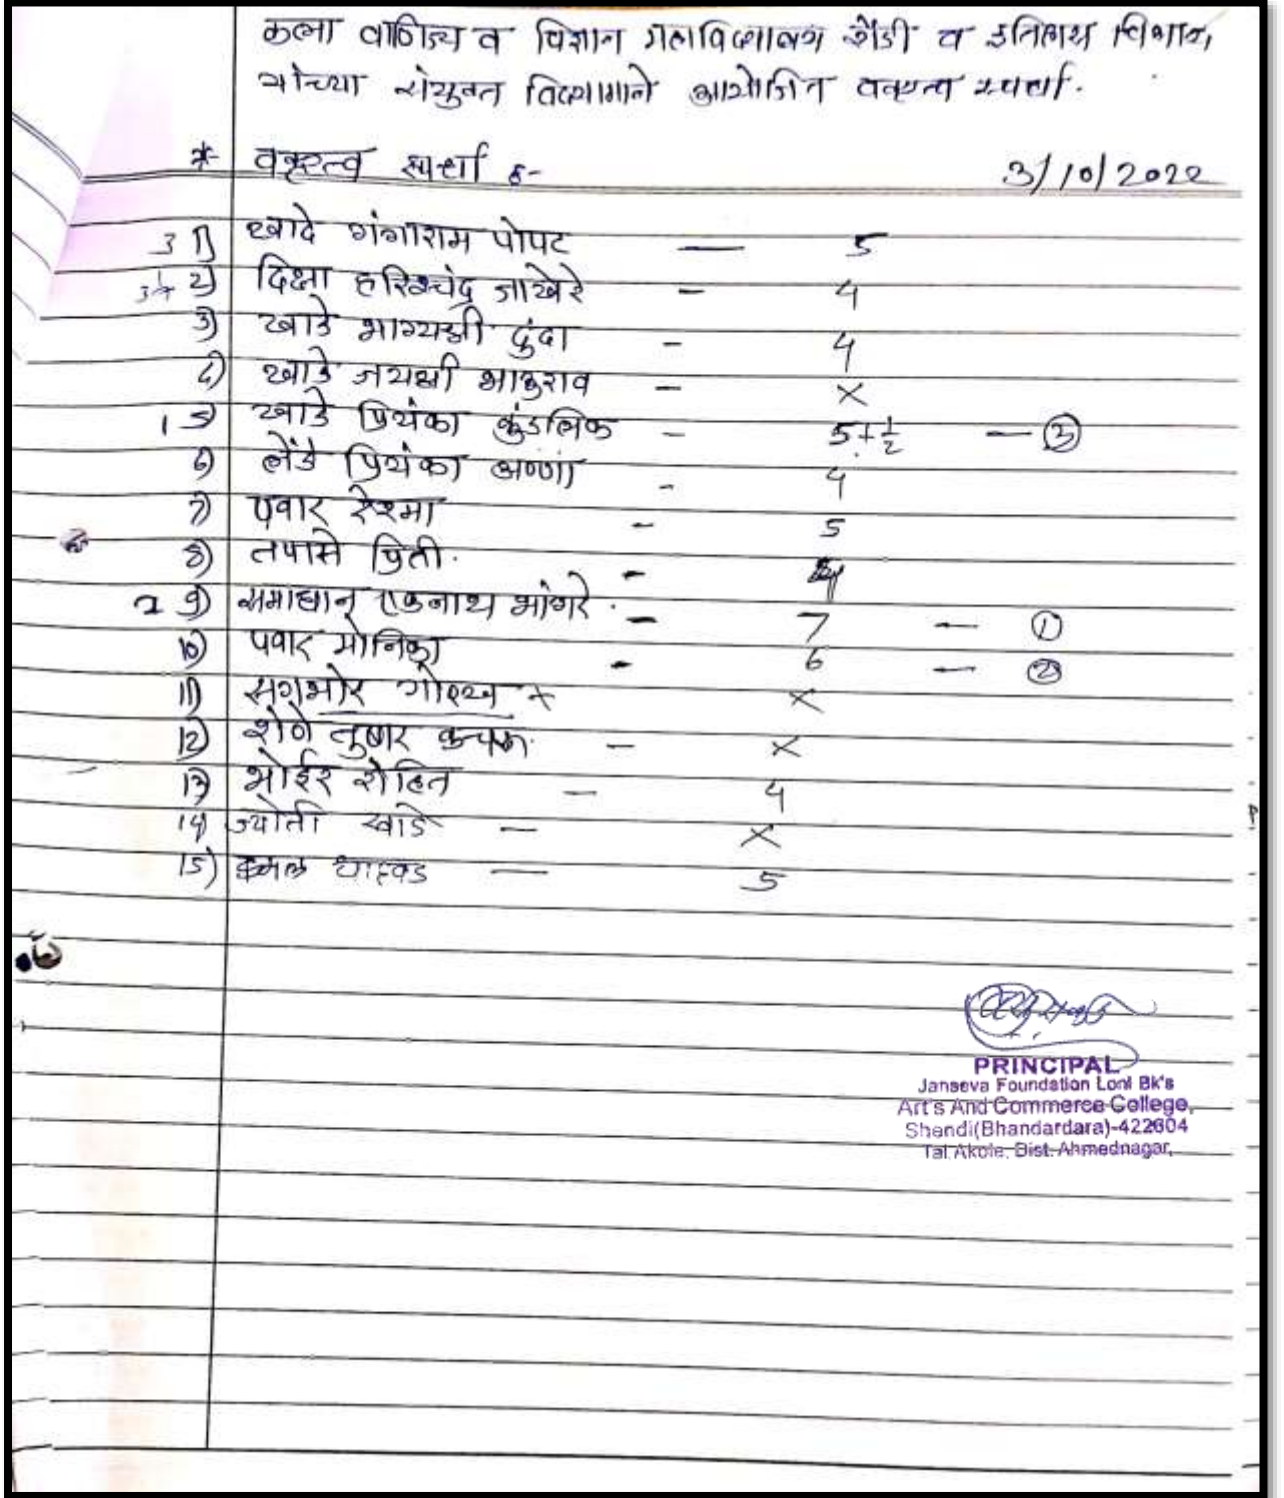 कला वाणिज्य व विज्ञान महाविद्यालय शेंडी व इतिहास विभाग,
यांच्या संयुक्त विद्यमाने आयोजित वक्तृत्व स्पर्धा.
* वक्तृत्व स्पर्धा :- 3/10/2022
3 1) खादे गंगाराम पोपट — 5
2) दिक्षा हरिश्चंद्र जाखेरे - 4
3) खाडे भाग्यश्री दुंदा - 4
4) खाडे जयश्री भाऊराव - ×
1 5) खाडे प्रियंका कुंडलिक - 5+½ — ③
6) लेंडे प्रियंका अण्णा - 4
7) पवार रेश्मा - 5
8) तपासे प्रिती. - 4
2 9) समाधान एकनाथ भांगरे. - 7 — ①
10) पवार मोनिका - 6 — ②
11) सगभोर गोरख × ×
12) शेणे तुषार - ×
13) भोईर रोहित - 4
14) ज्योती खाडे - ×
15) — 5
PRINCIPAL
Janseva Foundation Loni Bk's
Art's And Commerce College,
Shendi(Bhandardara)-422604
Tal. Akole, Dist. Ahmednagar,